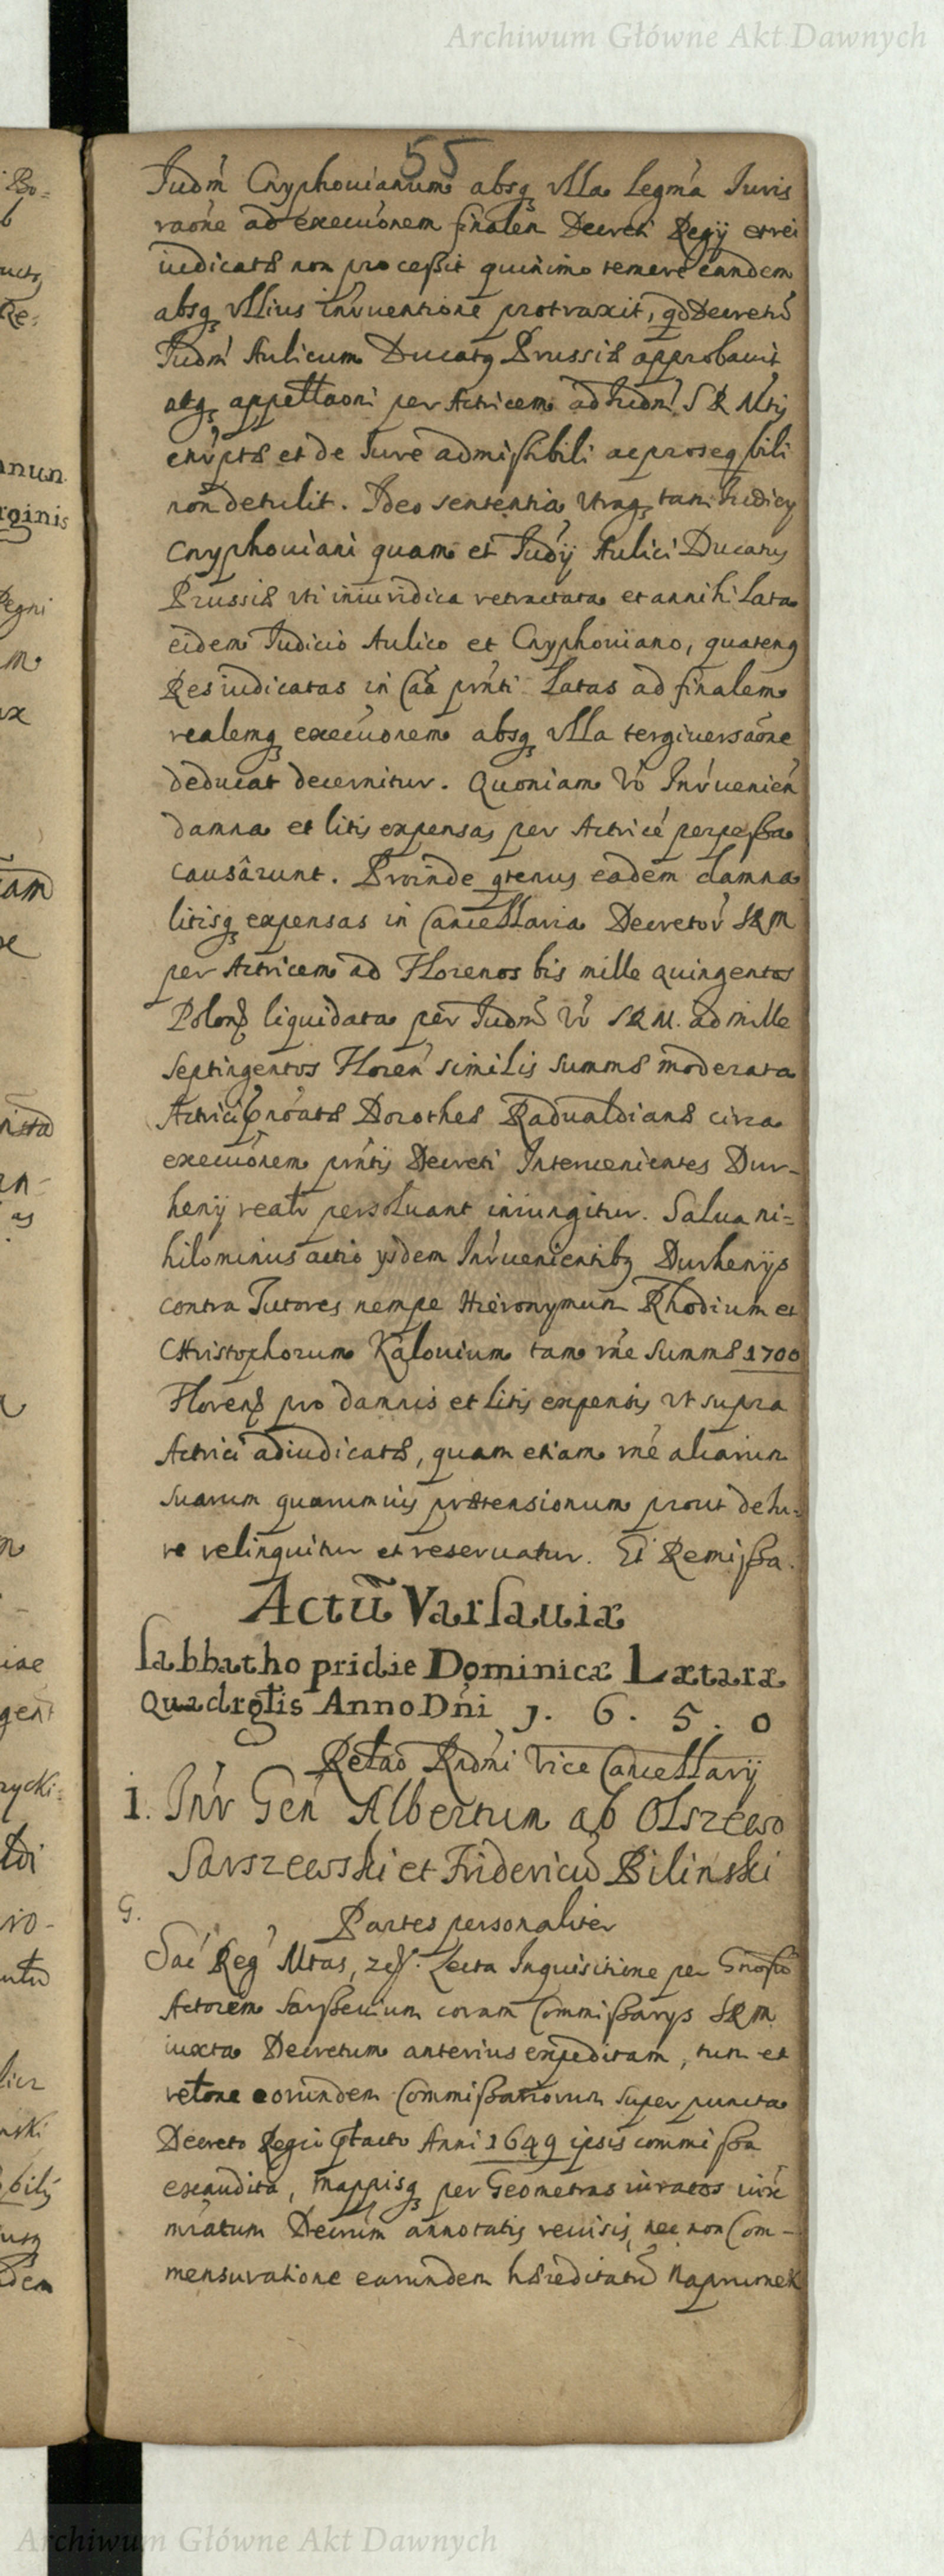 Archiwum Główne Akt Dawnych
55
Judm̄ Cnyphovianum absq₃ ulla legm̄a Juris
raōne ad execuōnem finalem Decreti Regij et rei
iudicatæ non processit quinimo temere eandem
absq₃ ullius Inr̄uentione protraxit, qd Decretū
Judm̄ Aulicum Ducatꝯ Prussiæ approbavit
atq₃ appellaōni per Actricem ad Judm̄ S R Mtis
et de Jure admissibili ac proseqbili
non detulit. Ideo sententia utraq₃ tam Judicij
Cnyphoviani quam et Judij Aulici Ducatus
Prussiæ uti iniuridica retractata et annihilata
eidem Judicio Aulico et Cnyphoviano, quatenꝯ
Res iudicatas in Caā prn̄ti latas ad finalem
realemq₃ execuōnem absq₃ ulla tergiversaōne
deducat decernitur. Quoniam vō Inr̄uenien̄
damna et litis expensas per Actricē perpessa
causârunt. Proinde qtenus eadem damna
litisq₃ expensas in Cancellaria Decretor̄ S R M
per Actricem ad Florenos bis mille quingentos
Polon̄ liquidata per Judm̄ vr̄ S R M. ad mille
septingentos Floren̄ similis summæ moderata
Actrici Dorotheæ Radualdianæ circa
execuōnem prn̄tis Decreti Intervenientes Dur-
henij realr̄ persoluant iniungitur. Salua ni=
hilominus actio ysdem Inr̄uenientibꝯ Durhenijs
contra Tutores nempe Hieronymum Rhodium et
Christophorum Kalouium tam rn̄e summæ 1700
Floren̄ pro damnis et litis expensis ut supra
Actrici adiudicatæ, quam etiam rn̄e aliarum
suarum quarumuis prætensionum prout de Ju-
re relinquitur et reseruatur. Et Remissa.
Actū Varsauiæ
sabbatho pridie Dominicæ Lætaræ
Quadrglis Anno Dn̄i 1. 6. 5. 0
Relaō Rndn̄i Vice Cancellarij
1. Inr̄ Gen̄ Albertum ab Olszewo
Sarszewski et Fridericū Bilinski
G.
Partes personaliter
Sac̄ Reḡ Mtas, Lecta Inquisitione per Gnosū
Actorem Sarssevium coram Commissarys S R M
iuxta Decretum anterius expeditam, tum et
relōne eorundem Commissariorum super puncta
Decreto Regio Anni 1649 ipsis commissa
exaudita, mappisq₃ per Geometras iuratos
Decrm̄ annotatis reuisis, nec non Com-
mensuratione earundem hæreditatū naprumek
anun.
rginis
Regni
Archiwum Główne Akt Dawnych